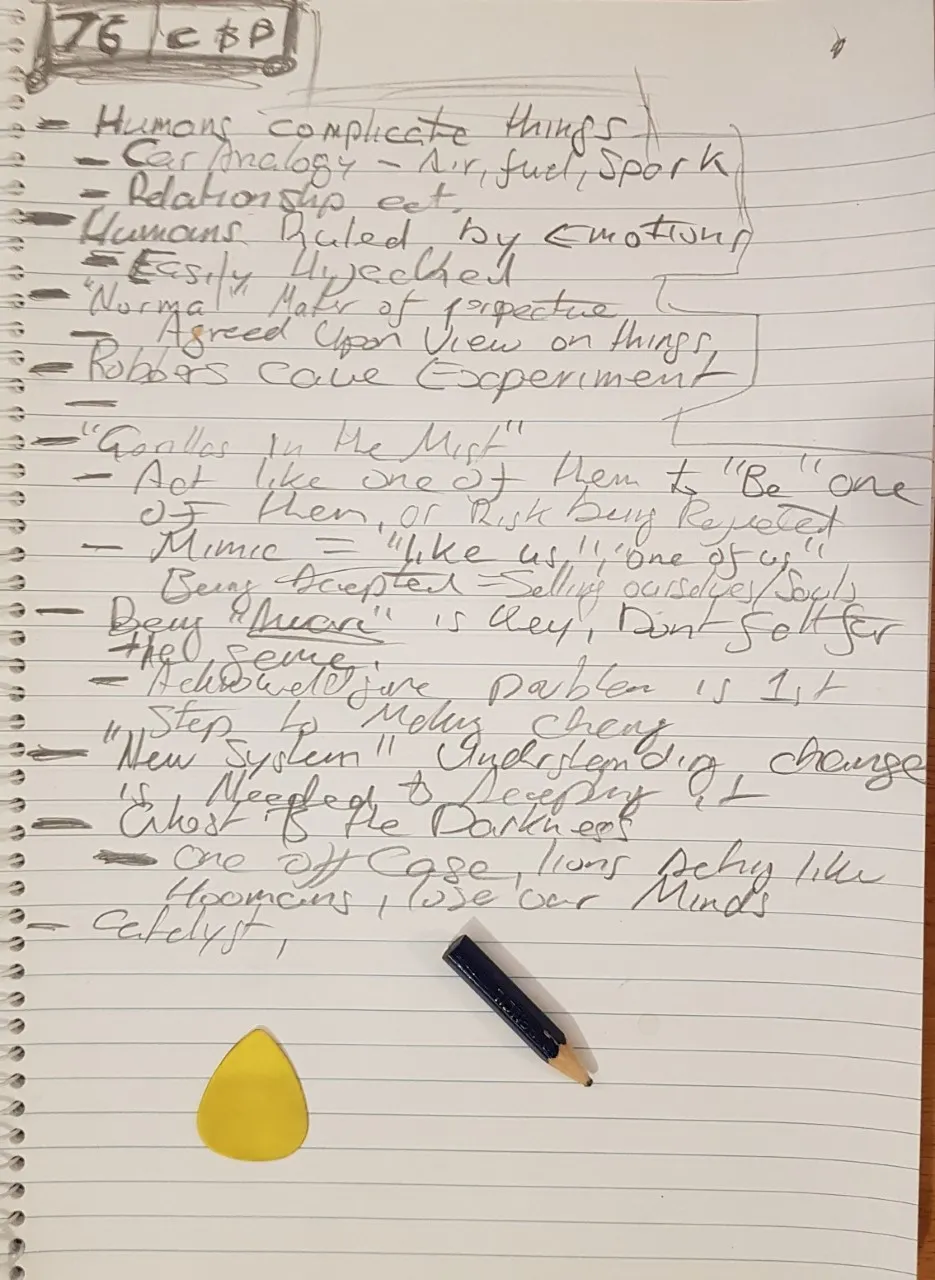 76 C & P
- Humans complicate things
- Car Analogy - Air, fuel, Spark
- Relationship ect.
- Humans Ruled by Emotions
- Easily Hijecked
- "Normal" Mater of perspective
- Agreed Upon View on things,
- Robbers Cave Experiment
-
- "Gorillas In the Mist"
- Act like one of them to "Be" one
of them, or Risk being Rejected
- Mimic = "like us", "one of us"
Being Accepted = Selling ourselves/Souls
- Being "Aware" is Key, Dont fall for
the
- problem is 1st
Step to Making
- "New System" Understanding change
is Needed &
- Ghost & the Darkness
- One off Case, lions Acting like
Hoomans, lose our Minds
- Catalyst,